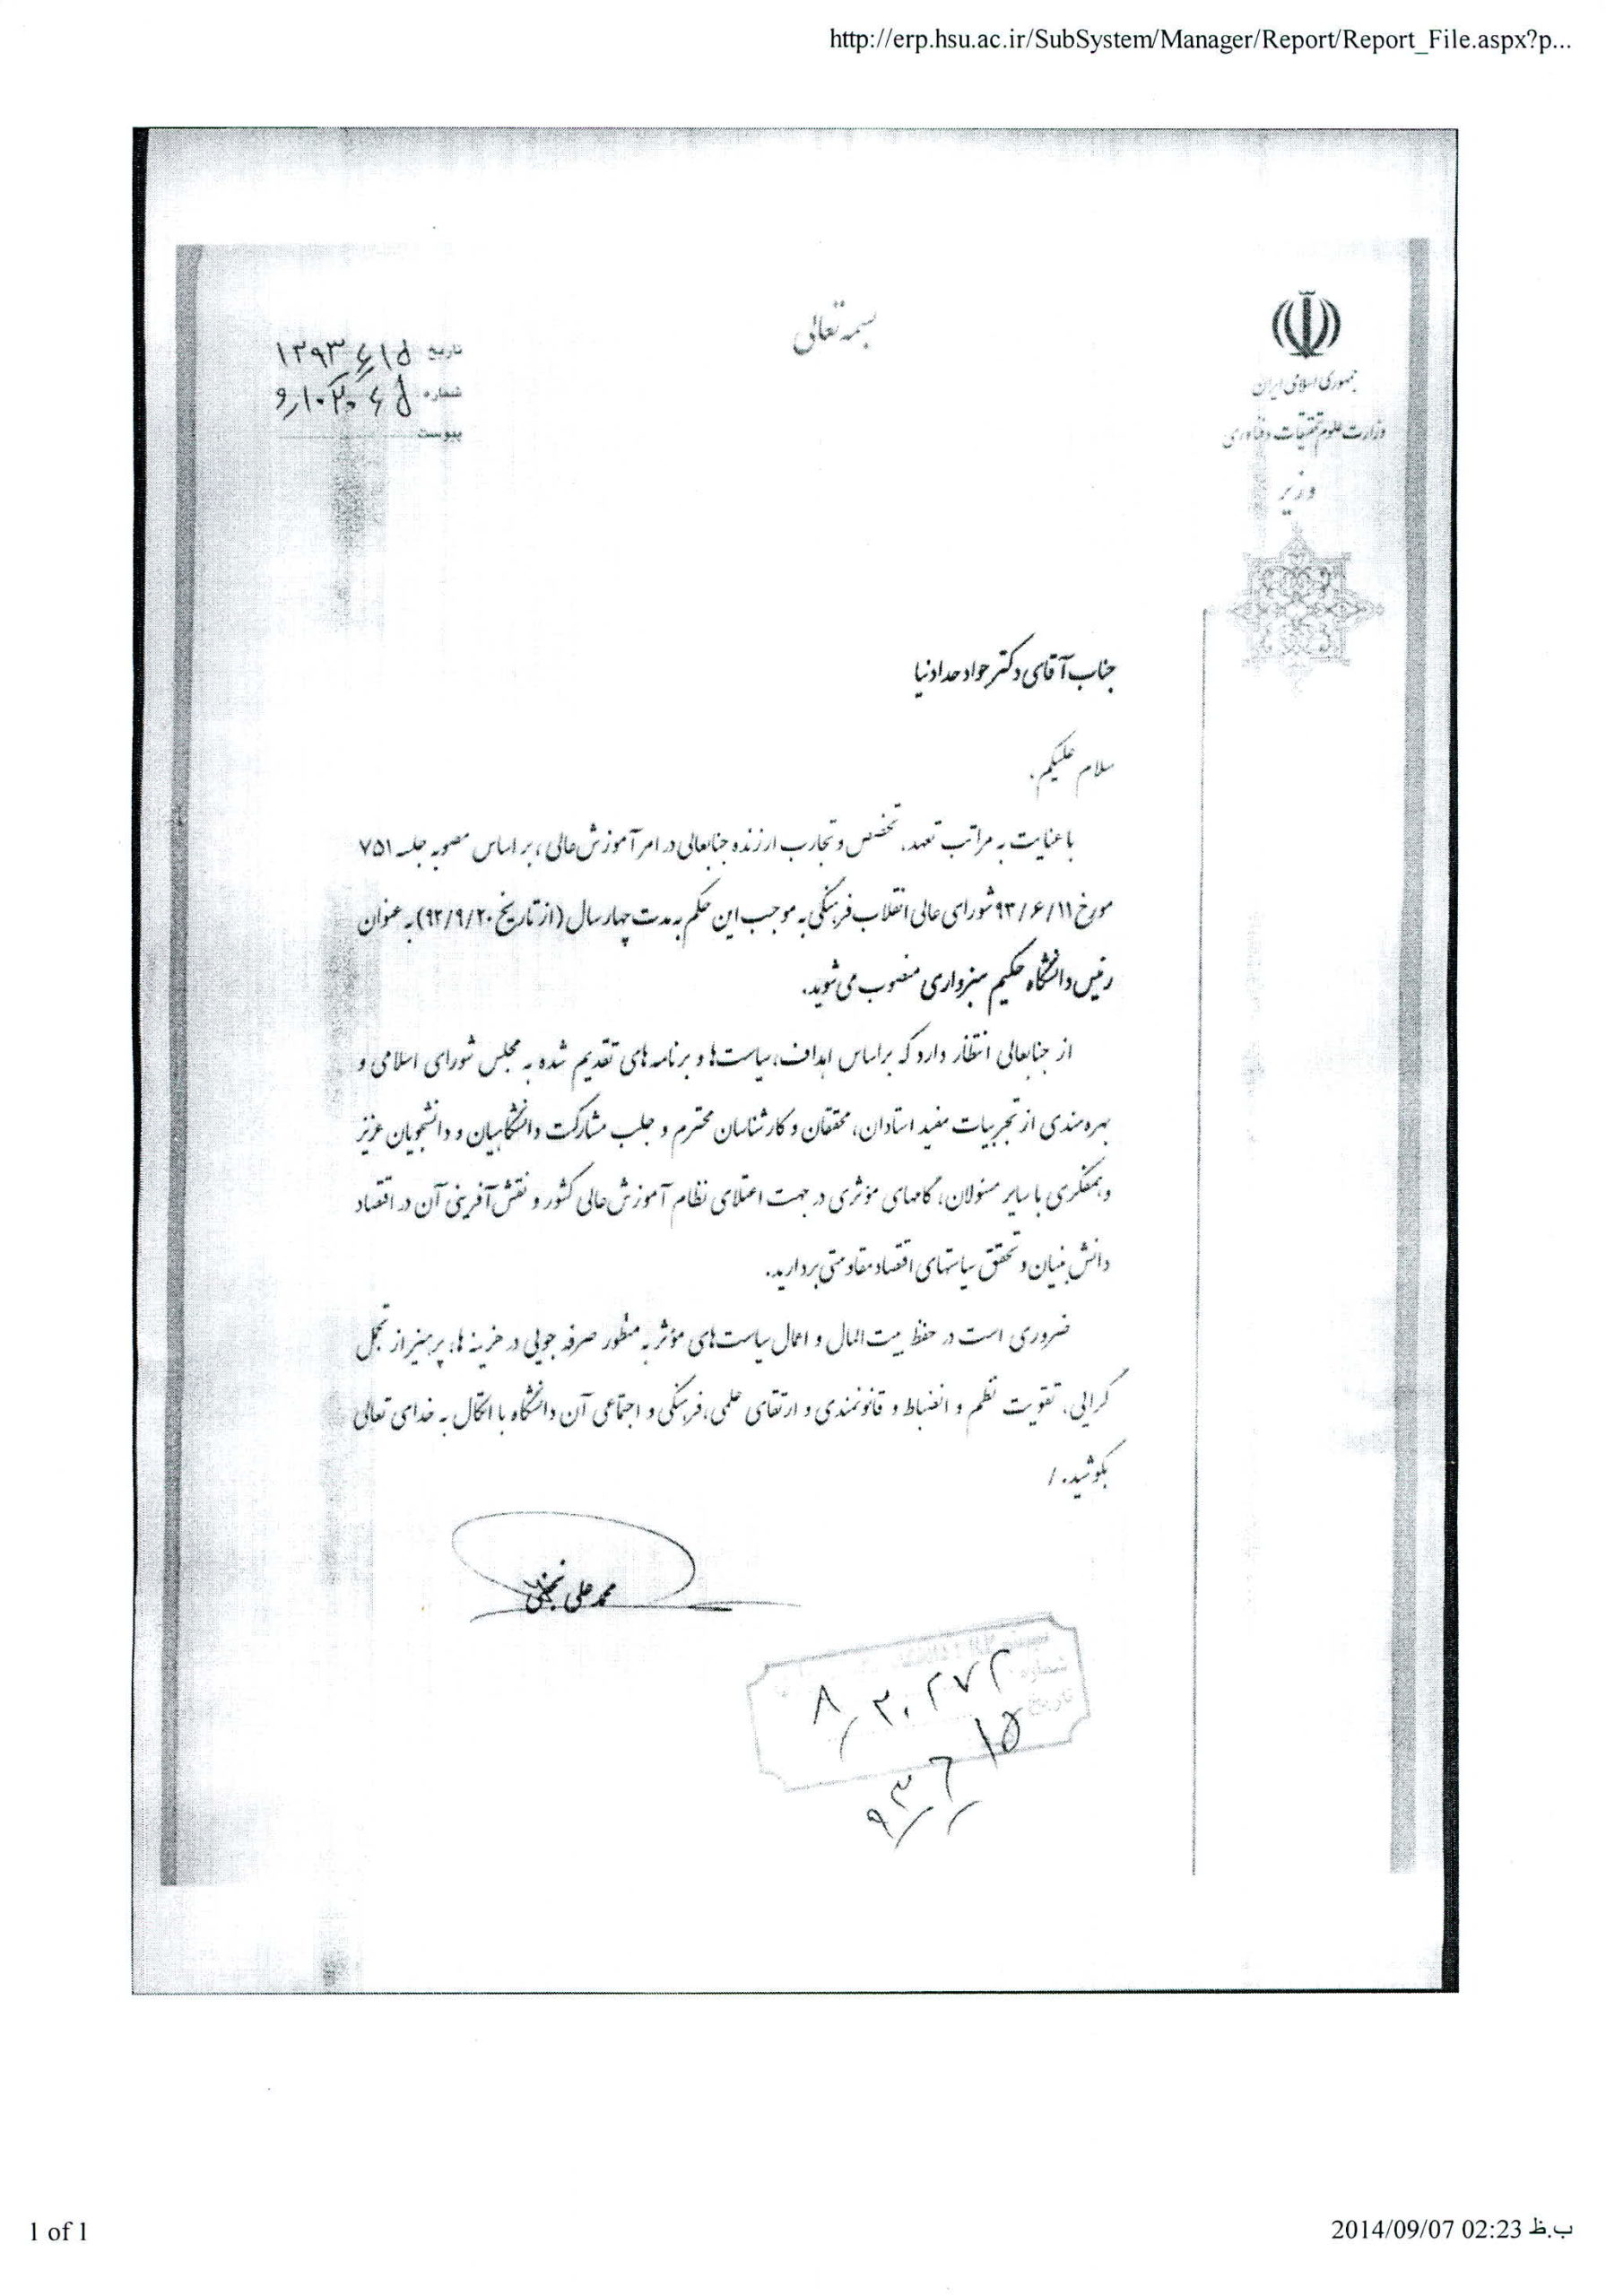 http://erp.hsu.ac.ir/SubSystem/Manager/Report/Report_File.aspx?p...
بسمه تعالی
جمهوری اسلامی ایران
وزارت علوم تحقیقات و فناوری
وزیر
تاریخ ۱۳۹۳/۶/۱۵
شماره
پیوست
جناب آقای دکتر جواد حدادنیا
سلام علیکم.
با عنایت به مراتب تعهد، تخصص و تجارب ارزنده جنابعالی در امر آموزش عالی، بر اساس مصوبه جلسه ۷۵۱
مورخ ۹۳/۶/۱۱ شورای عالی انقلاب فرهنگی به موجب این حکم به مدت چهار سال (از تاریخ ۹۲/۹/۲۰) به عنوان
رئیس دانشگاه حکیم سبزواری منصوب می شوید.
از جنابعالی انتظار دارد که براساس اهداف، سیاست ها و برنامه های تقدیم شده به مجلس شورای اسلامی و
بهره مندی از تجربیات مفید استادان، محققان و کارشناسان محترم و جلب مشارکت دانشگاهیان و دانشجویان عزیز
و همفکری با سایر مسئولان، گامهای مؤثری در جهت اعتلای نظام آموزش عالی کشور و نقش آفرینی آن در اقتصاد
دانش بنیان و تحقق سیاستهای اقتصاد مقاومتی بردارید.
ضروری است در حفظ بیت المال و اعمال سیاست های مؤثر به منظور صرفه جویی در هزینه ها، پرهیز از تجمل
گرایی، تقویت نظم و انضباط و قانونمندی و ارتقای علمی، فرهنگی و اجتماعی آن دانشگاه با اتکال به خدای تعالی
بکوشید. /
محمد علی نجفی
شماره
۹۳/۶/۱۵
1 of 1
2014/09/07 02:23 ب.ظ